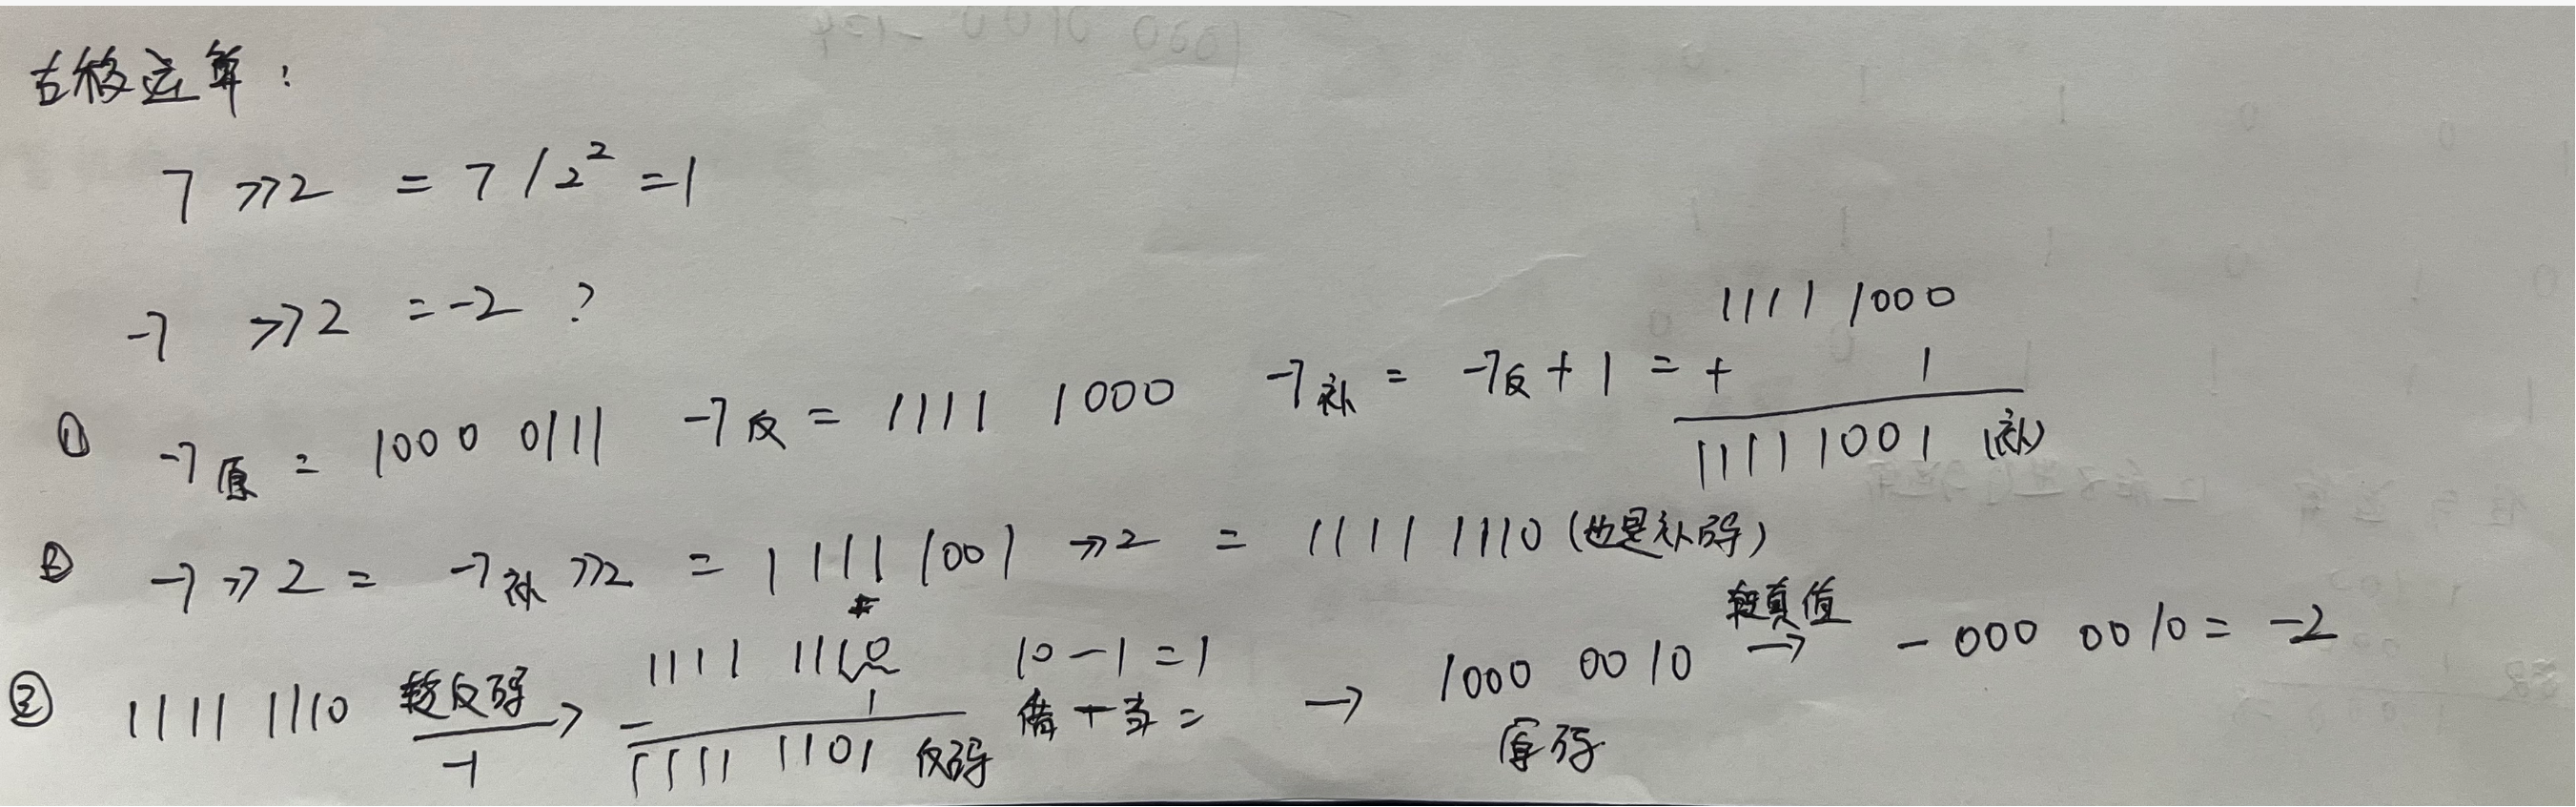 右移运算：
7 >>2 = 7 / 2² = 1
-7 >>2 = -2 ?
① -7原 = 1000 0111 -7反 = 1111 1000 -7补 = -7反 + 1 = 1111 1000
+ 1
1111 1001 (补)
② -7 >> 2 = -7补 >>2 = 1111 1001 >>2 = 1111 1110 (也是补码)
③ 1111 1110 转反码 → -1 1111 1110
- 1
1111 1101 反码
10 - 1 = 1
借一当二
→ 1000 0010 原码 转真值 → - 000 0010 = -2